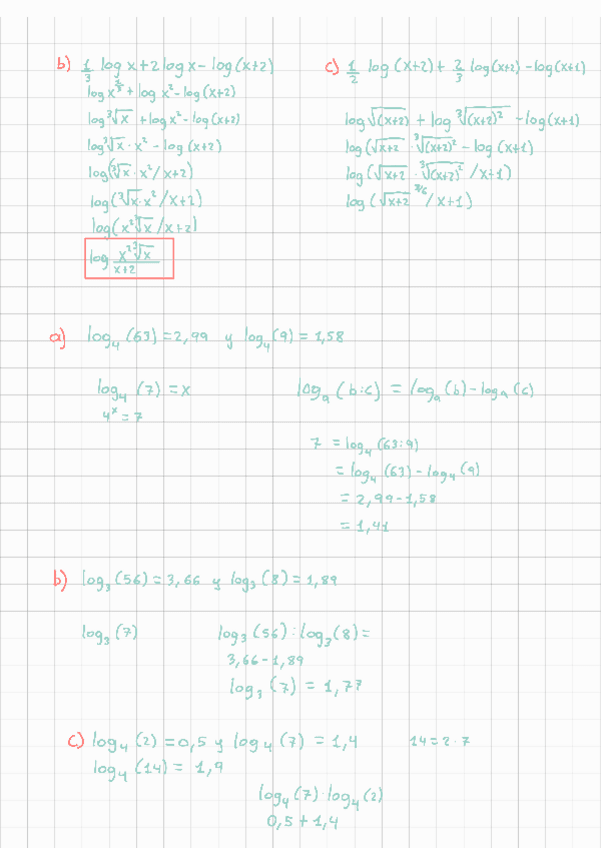 b) 1/3 log x + 2 log x - log (x+2)
log x^(2/3) + log x² - log (x+2)
log ³√x + log x² - log (x+2)
log ³√x · x² - log (x+2)
log (³√x · x² / x+2)
log (³√x · x² / x+2)
log (x² ³√x / x+2)
log x² ³√x / x+2
c) 1/2 log (x+2) + 2/3 log (x+2) - log (x+1)
log √(x+2) + log ³√(x+2)² - log (x+1)
log (√x+2 · ³√(x+2)² - log (x+1)
log (√x+2 · ³√(x+2)² / x+1)
log (√x+2 / x+1)
a) log₄ (63) = 2,99 y log₄ (9) = 1,58
log₄ (7) = x
4ˣ = 7
logₐ (b:c) = logₐ (b) - logₐ (c)
7 = log₄ (63:9)
= log₄ (63) - log₄ (9)
= 2,99 - 1,58
= 1,41
b) log₃ (56) = 3,66 y log₃ (8) = 1,89
log₃ (7)
log₃ (56) : log₃ (8) =
3,66 - 1,89
log₃ (7) = 1,77
c) log₄ (2) = 0,5 y log₄ (7) = 1,4 14 = 2 · 7
log₄ (14) = 1,9
log₄ (7) · log₄ (2)
0,5 + 1,4